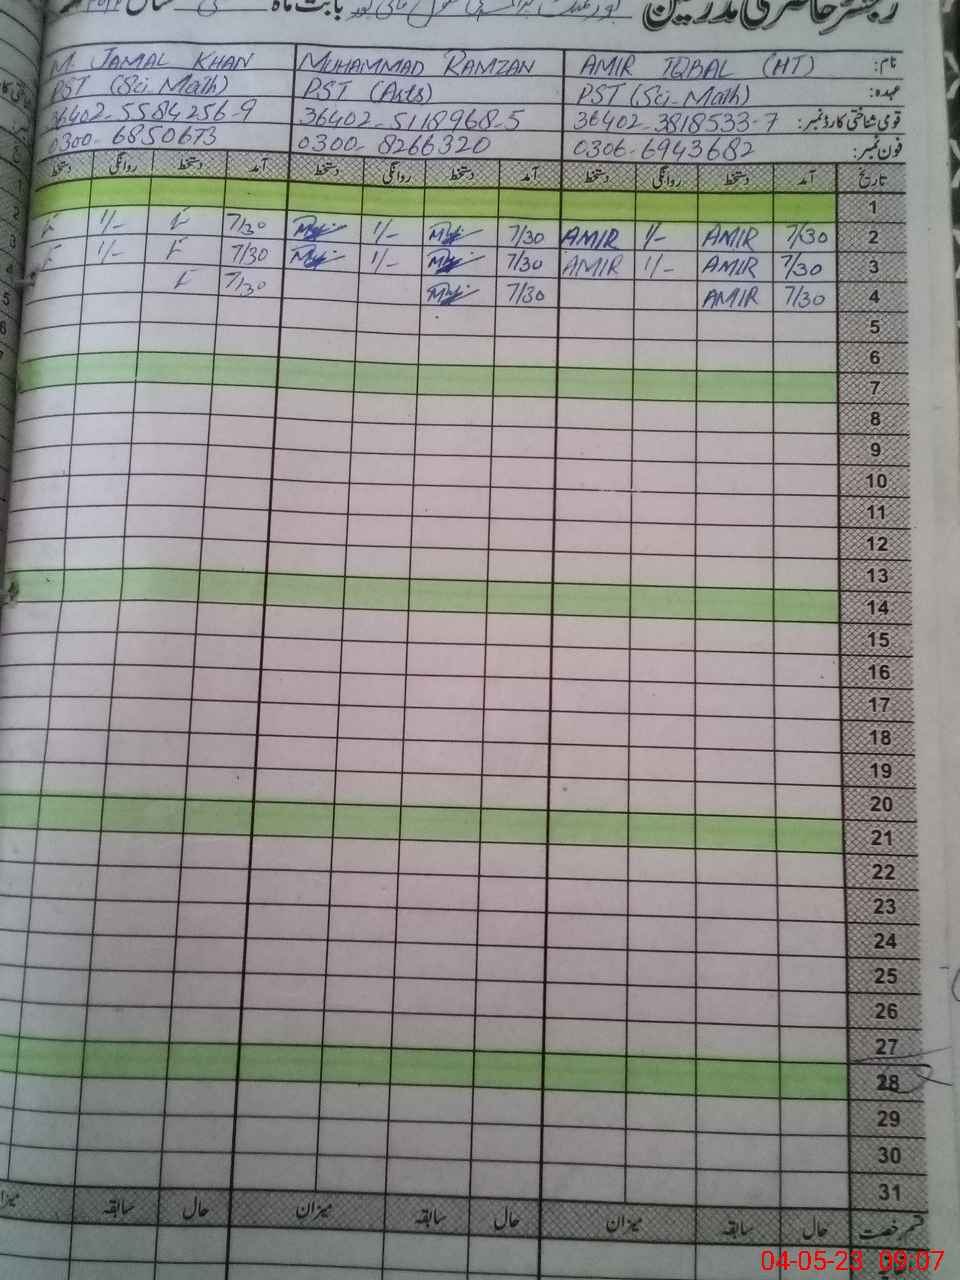 رجسٹر حاضری مدرسین بابت ماہ سال
نام: AMIR IQBAL (HT) MUHAMMAD RAMZAN M. JAMAL KHAN
عہدہ: PST (Sci-Math) PST (Arts) PST (Sci. Math)
قومی شناختی کارڈ نمبر: 36402-3818533-7 36402-5118968-5 36402-5584256-9
فون نمبر: 0306-6943682 0300-8266320 0300-6850673
تاریخ آمد دستخط روانگی دستخط آمد دستخط روانگی دستخط آمد دستخط روانگی دستخط
1
2 7/30 AMIR 1/- AMIR 7/30 1/- 7/30 1/-
3 7/30 AMIR 1/- AMIR 7/30 1/- 7/30 1/-
4 7/30 AMIR 7/30 7/30
5
6
7
8
9
10
11
12
13
14
15
16
17
18
19
20
21
22
23
24
25
26
27
28
29
30
31
قسم رخصت حال سابقہ میزان حال سابقہ میزان حال سابقہ
04-05-23 09:07